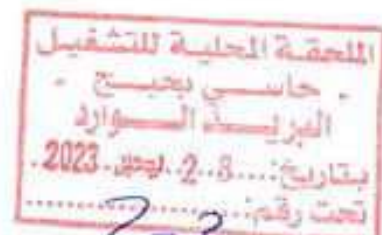 الملحقة المحلية للتشغيل
- حاسي بحبح -
البريد الوارد
بتاريخ:....2.8.......2023.
تحت رقم:....................